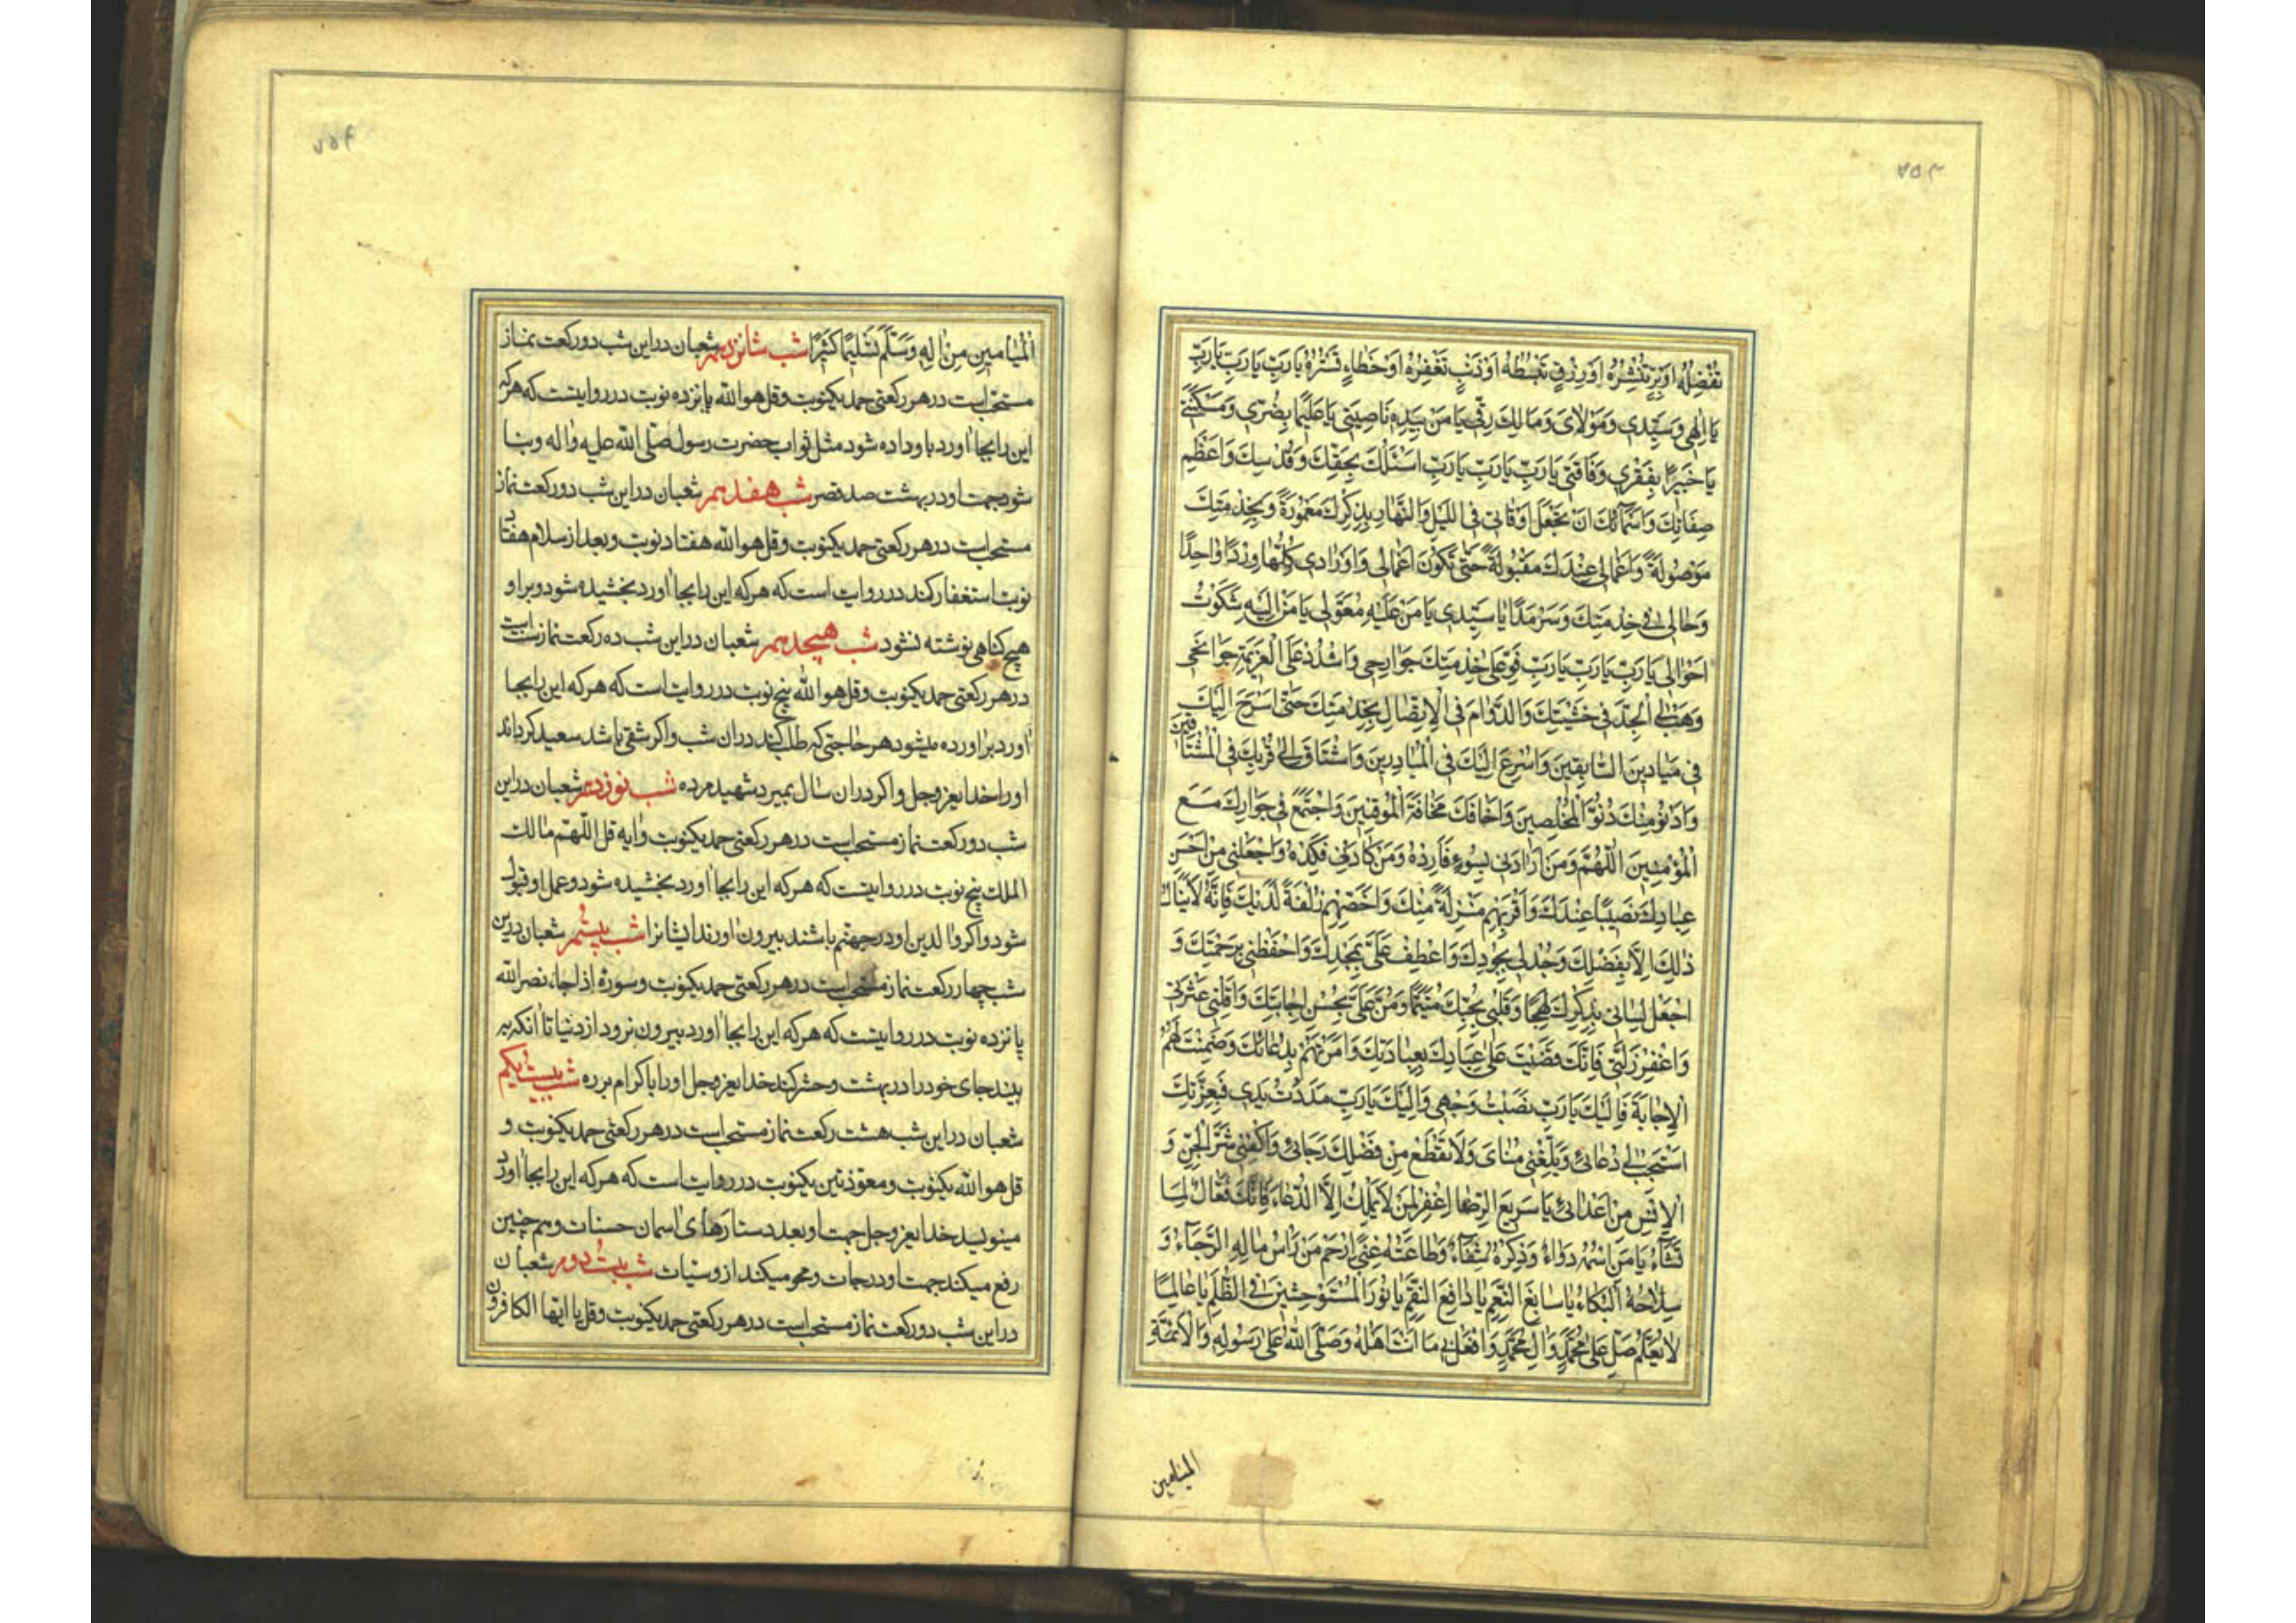 ۷۵۳
تُفْضِلُهُ اَوْ بِرٍّ تَنْشُرُهُ اَوْ رِزْقٍ تَبْسُطُهُ اَوْ ذَنْبٍ تَغْفِرُهُ اَوْ خَطَاءٍ تَسْتُرُهُ يَا رَبِّ يَا رَبِّ يَا رَبِّ
يَا اِلٰهِي وَسَيِّدِي وَمَوْلَايَ وَمَالِكَ رِقِّي يَا مَنْ بِيَدِهِ نَاصِيَتِي يَا عَلِيمًا بِضُرِّي وَمَسْكَنَتِي
يَا خَبِيرًا بِفَقْرِي وَفَاقَتِي يَا رَبِّ يَا رَبِّ يَا رَبِّ اَسْئَلُكَ بِحَقِّكَ وَقُدْسِكَ وَاَعْظَمِ
صِفَاتِكَ وَاَسْمَائِكَ اَنْ تَجْعَلَ اَوْقَاتِي فِي اللَّيْلِ وَالنَّهَارِ بِذِكْرِكَ مَعْمُورَةً وَبِخِدْمَتِكَ
مَوْصُولَةً وَاَعْمَالِي عِنْدَكَ مَقْبُولَةً حَتّٰى تَكُونَ اَعْمَالِي وَاَوْرَادِي كُلُّهَا وِرْدًا وَاحِدًا
وَحَالِي فِي خِدْمَتِكَ سَرْمَدًا يَا سَيِّدِي يَا مَنْ عَلَيْهِ مُعَوَّلِي يَا مَنْ اِلَيْهِ شَكَوْتُ
اَحْوَالِي يَا رَبِّ يَا رَبِّ يَا رَبِّ قَوِّ عَلٰى خِدْمَتِكَ جَوَارِحِي وَاشْدُدْ عَلَى الْعَزِيمَةِ جَوَانِحِي
وَهَبْ لِيَ الْجِدَّ فِي خَشْيَتِكَ وَالدَّوَامَ فِي الْاِتِّصَالِ بِخِدْمَتِكَ حَتّٰى اَسْرَحَ اِلَيْكَ
فِي مَيَادِينِ السَّابِقِينَ وَاُسْرِعَ اِلَيْكَ فِي الْمُبَادِرِينَ وَاَشْتَاقَ اِلٰى قُرْبِكَ فِي الْمُشْتَاقِينَ
وَاَدْنُوَ مِنْكَ دُنُوَّ الْمُخْلِصِينَ وَاَخَافَكَ مَخَافَةَ الْمُوقِنِينَ وَاَجْتَمِعَ فِي جِوَارِكَ مَعَ
الْمُؤْمِنِينَ اَللّٰهُمَّ وَمَنْ اَرَادَنِي بِسُوءٍ فَاَرِدْهُ وَمَنْ كَادَنِي فَكِدْهُ وَاجْعَلْنِي مِنْ اَحْسَنِ
عِبَادِكَ نَصِيبًا عِنْدَكَ وَاَقْرَبِهِمْ مَنْزِلَةً مِنْكَ وَاَخَصِّهِمْ زُلْفَةً لَدَيْكَ فَاِنَّهُ لَا يُنَالُ
ذٰلِكَ اِلَّا بِفَضْلِكَ وَجُدْ لِي بِجُودِكَ وَاعْطِفْ عَلَيَّ بِمَجْدِكَ وَاحْفَظْنِي بِرَحْمَتِكَ وَ
اجْعَلْ لِسَانِي بِذِكْرِكَ لَهِجًا وَقَلْبِي بِحُبِّكَ مُتَيَّمًا وَمُنَّ عَلَيَّ بِحُسْنِ اِجَابَتِكَ وَاَقِلْنِي عَثْرَتِي
وَاغْفِرْ زَلَّتِي فَاِنَّكَ قَضَيْتَ عَلٰى عِبَادِكَ بِعِبَادَتِكَ وَاَمَرْتَهُمْ بِدُعَائِكَ وَضَمِنْتَ لَهُمُ
الْاِجَابَةَ فَاِلَيْكَ يَا رَبِّ نَصَبْتُ وَجْهِي وَاِلَيْكَ يَا رَبِّ مَدَدْتُ يَدِي فَبِعِزَّتِكَ
اسْتَجِبْ لِي دُعَائِي وَبَلِّغْنِي مُنَايَ وَلَا تَقْطَعْ مِنْ فَضْلِكَ رَجَائِي وَاكْفِنِي شَرَّ الْجِنِّ وَ
الْاِنْسِ مِنْ اَعْدَائِي يَا سَرِيعَ الرِّضَا اِغْفِرْ لِمَنْ لَا يَمْلِكُ اِلَّا الدُّعَاءَ فَاِنَّكَ فَعَّالٌ لِمَا
تَشَاءُ يَا مَنِ اسْمُهُ دَوَاءٌ وَذِكْرُهُ شِفَاءٌ وَطَاعَتُهُ غِنًى اِرْحَمْ مَنْ رَأْسُ مَالِهِ الرَّجَاءُ وَ
سِلَاحُهُ الْبُكَاءُ يَا سَابِغَ النِّعَمِ يَا دَافِعَ النِّقَمِ يَا نُورَ الْمُسْتَوْحِشِينَ فِي الظُّلَمِ يَا عَالِمًا
لَا يُعَلَّمُ صَلِّ عَلٰى مُحَمَّدٍ وَاٰلِ مُحَمَّدٍ وَافْعَلْ بِي مَا اَنْتَ اَهْلُهُ وَصَلَّى اللهُ عَلٰى رَسُولِهِ وَالْاَئِمَّةِ
المیامین
۷۵۴
الْمَيَامِينِ مِنْ اٰلِهِ وَسَلَّمَ تَسْلِيمًا كَثِيرًا شب شانزدهم شعبان دراین شب دو رکعت نماز
مستحب است در هر رکعتی حمد یکنوبت و قل هو الله پانزده نوبت در روایتست که هر که
این را بجا آورد باو داده شود مثل ثواب حضرت رسول صلی الله علیه واله وبنا
شود جهت او در بهشت صد قصر شب هفدهم شعبان دراین شب دو رکعت نماز
مستحب است در هر رکعتی حمد یکنوبت و قل هو الله هفتاد نوبت و بعد از سلام هفتاد
نوبت استغفار کند در روایت است که هر که این را بجا آورد بخشیده شود و بر او
هیچ کناهی نوشته نشود شب هیجدهم شعبان دراین شب ده رکعت نماز است
در هر رکعتی حمد یکنوبت و قل هو الله پنج نوبت در روایت است که هر که این را بجا
آورد براورده میشود هر حاجتی که طلب کند دران شب واکر شقی باشد سعید کرداند
او را خدا یعز وجل واکر دران سال بمیرد شهید مرده شب نوزدهم شعبان دراین
شب دو رکعت نماز مستحب است در هر رکعتی حمد یکنوبت وایه قل اللهم مالک
الملک پنج نوبت در روایتست که هر که این را بجا آورد بخشیده شود و عمل او قبول
شود واکر والدین او در جهنم باشند بیرون آورند ایشانرا شب بیستم شعبان دراین
شب چهار رکعت نماز مستحب است در هر رکعتی حمد یکنوبت و سورة اذا جاء نصر الله
پانزده نوبت در روایتست که هر که این را بجا آورد بیرون نرود از دنیا تا آنکه به
بیند جای خود را در بهشت وحشر کند خدا یعز وجل او را با کرام برره شب بیست یکم
شعبان دراین شب هشت رکعت نماز مستحب است در هر رکعتی حمد یکنوبت و
قل هو الله یکنوبت و معوذتین یکنوبت در روایت است که هر که این را بجا آورد
مینویسد خدا یعز وجل جهت او بعدد ستارهای اسمان حسنات و هم چنین
رفع میکند جهت او درجات و محو میکند از و سیئات شب بیست دوم شعبان
دراین شب دو رکعت نماز مستحب است در هر رکعتی حمد یکنوبت و قل یا ایها الکافرون